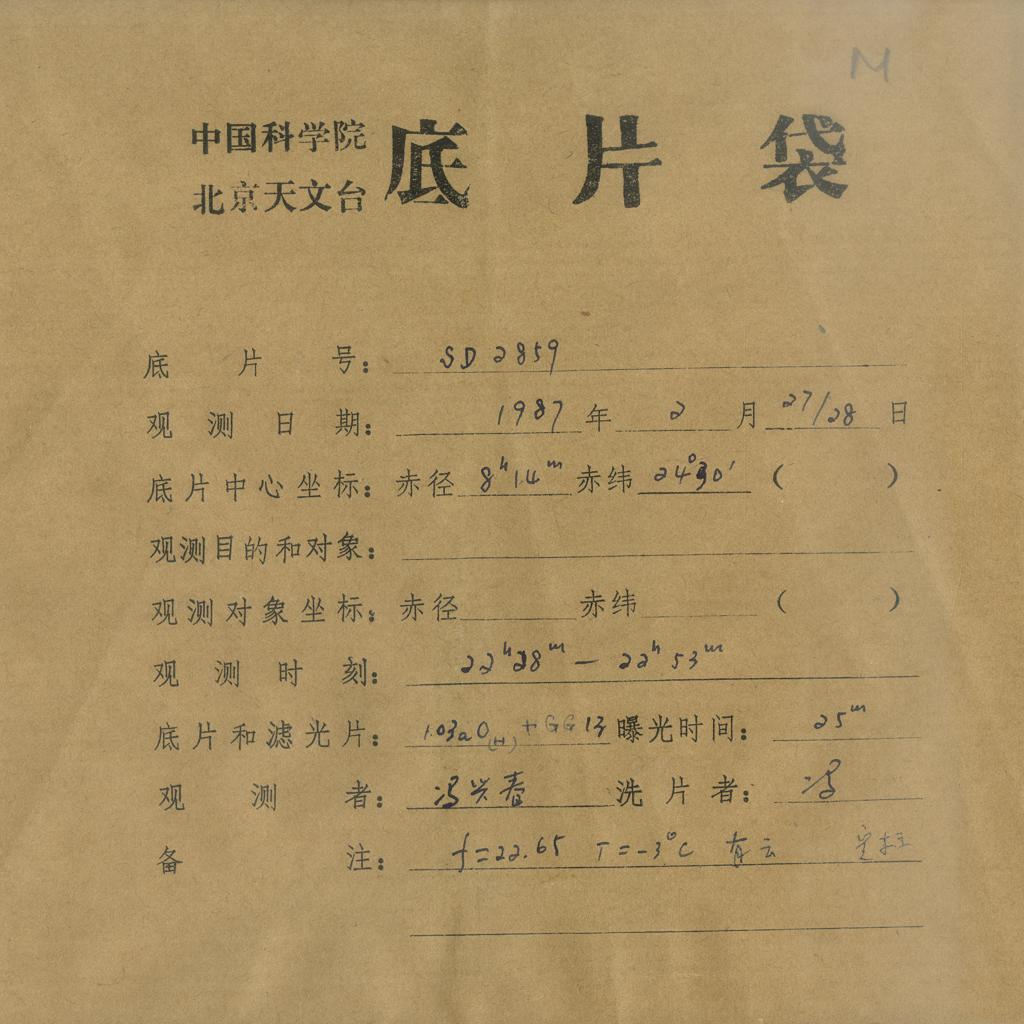 M
中国科学院
北京天文台
底片袋
底片号： SD 2859
观测日期： 1987 年 2 月 27/28 日
底片中心坐标：赤径 8ʰ14ᵐ 赤纬 24°30′ （ ）
观测目的和对象：
观测对象坐标：赤径 赤纬 （ ）
观测时刻： 22ʰ28ᵐ — 22ʰ53ᵐ
底片和滤光片： 103aO(H) + GG13 曝光时间： 25ᵐ
观测者： 冯兴春 洗片者： 冯
备注： f=22.65 T=-3°C 有云 定标